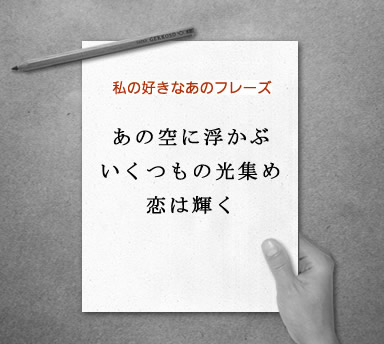 私の好きなあのフレーズ
あの空に浮かぶ
いくつもの光集め
恋は輝く